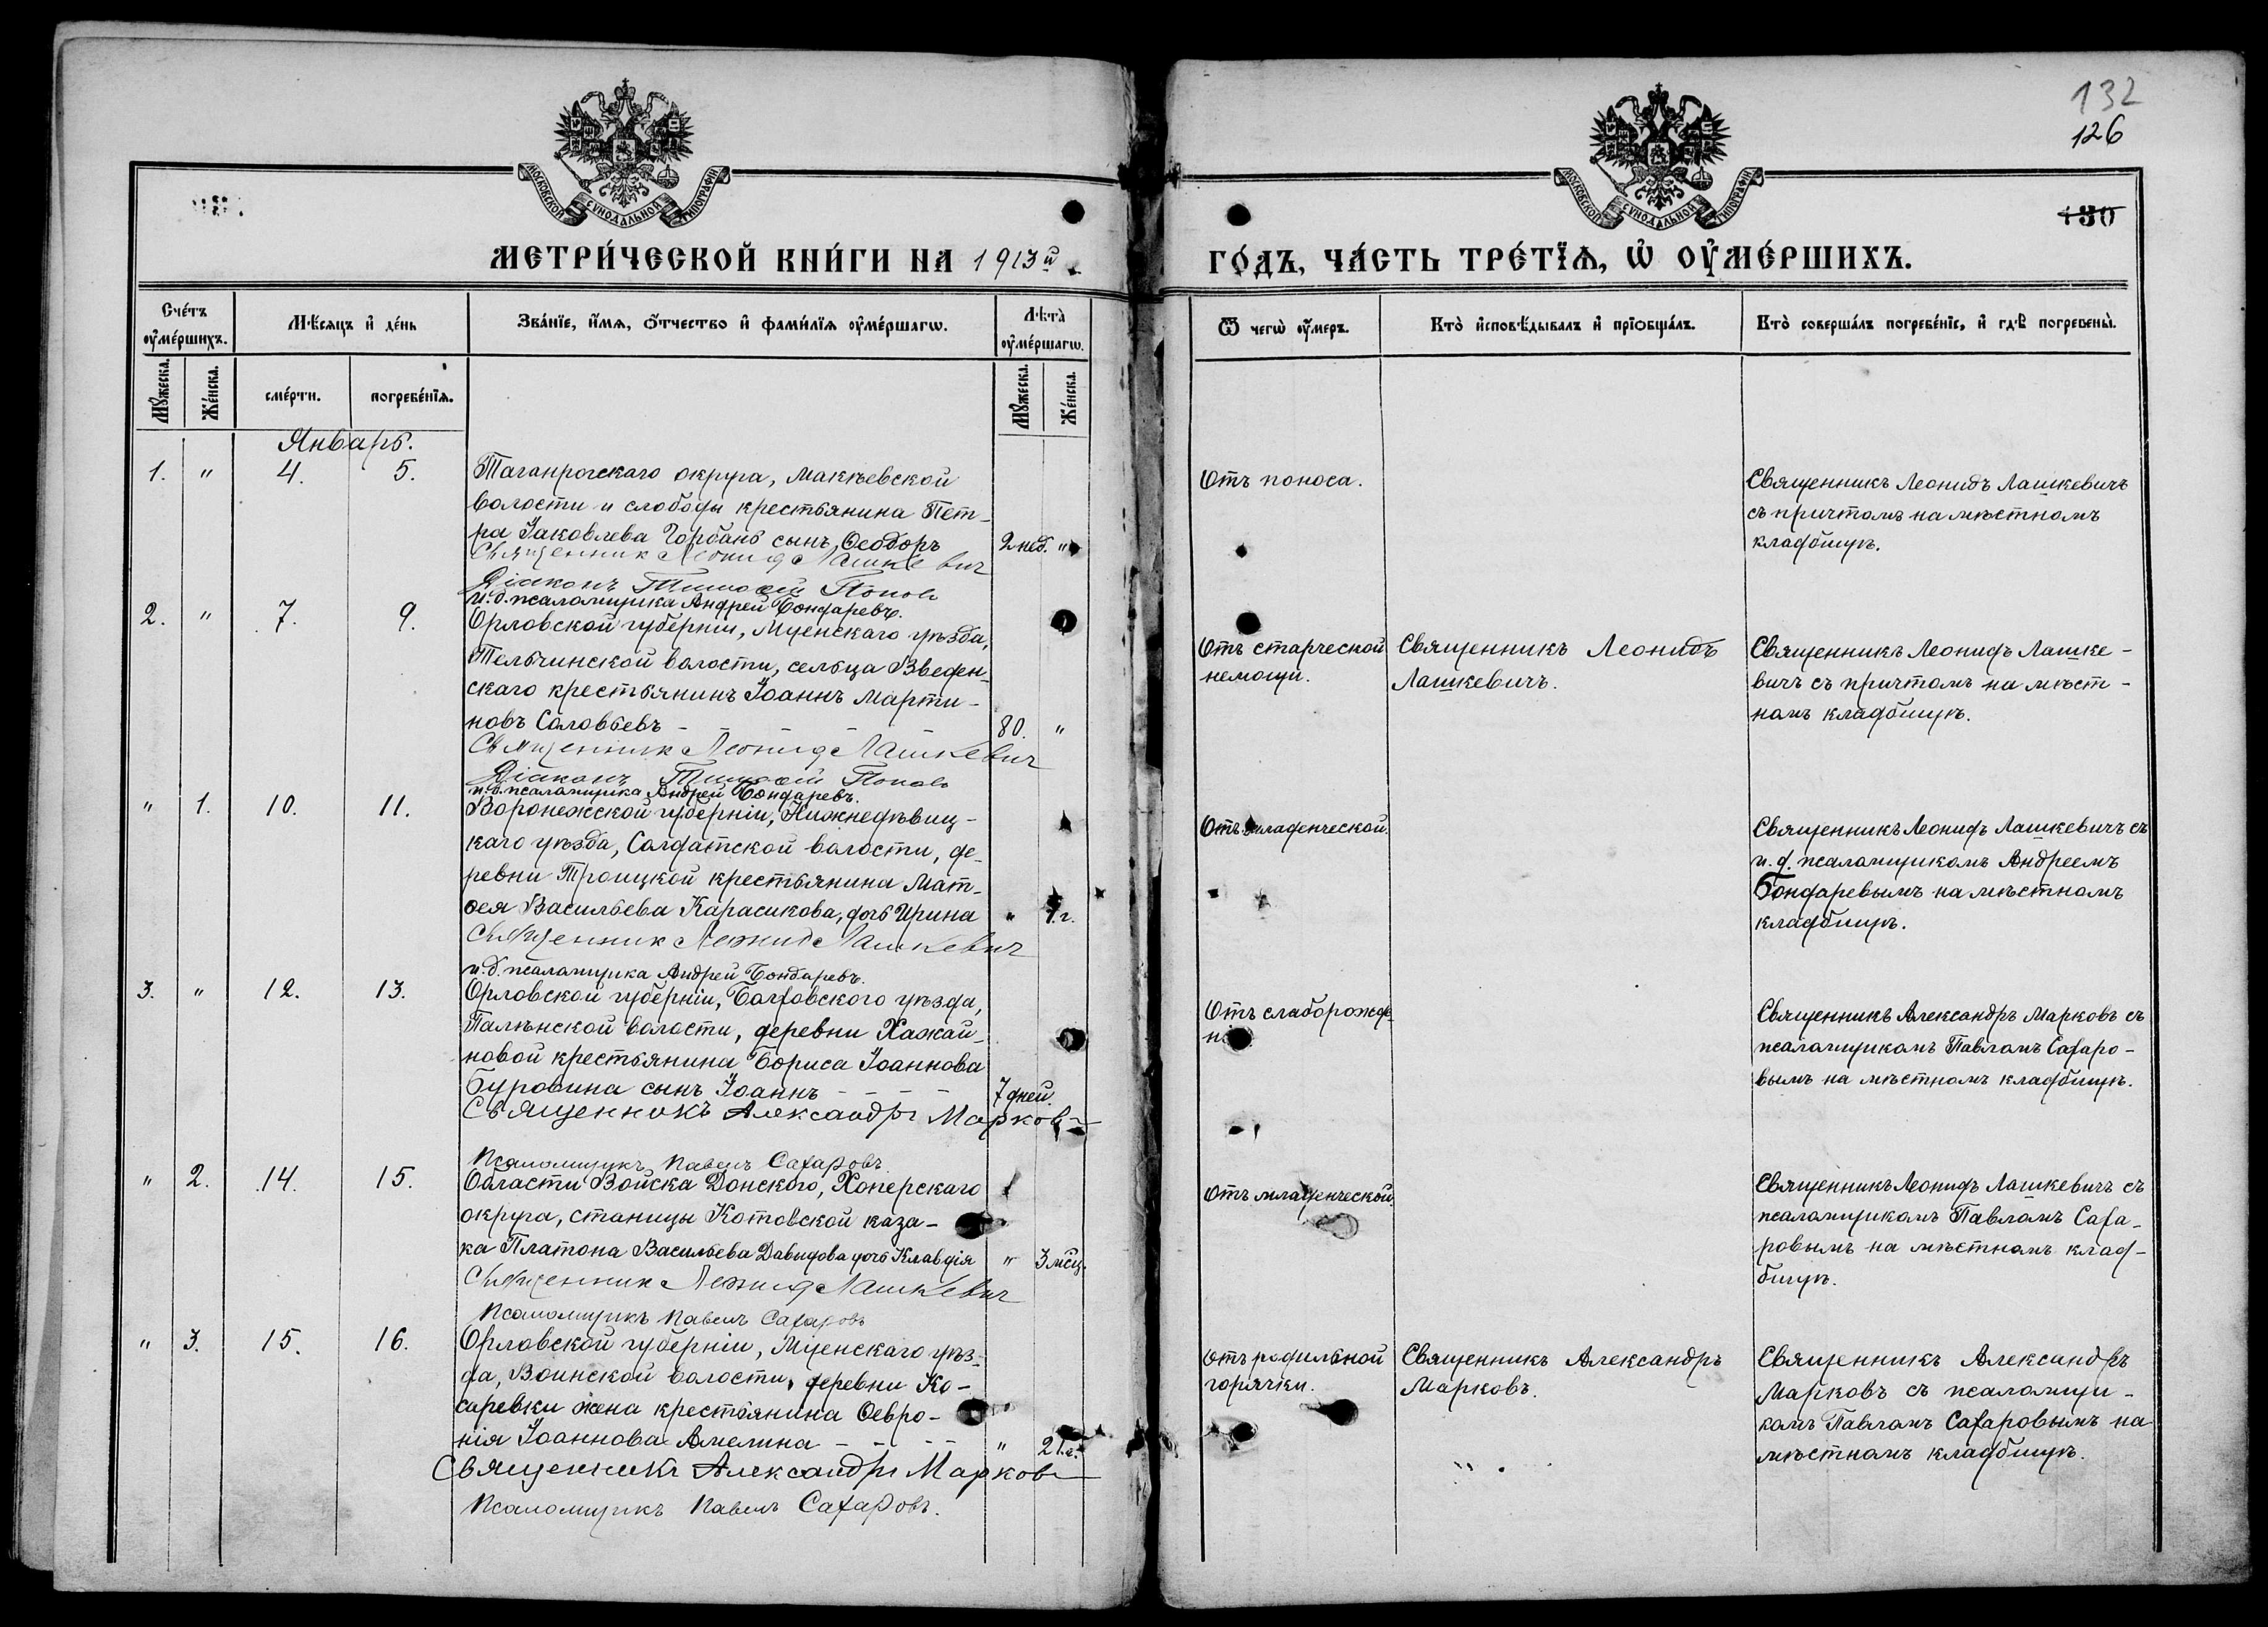 132
126
130
МОСКОВСКОЙ СѴНОДАЛЬНОЙ ТИПОГРАФІИ
МОСКОВСКОЙ СѴНОДАЛЬНОЙ ТИПОГРАФІИ
МЕТРИ́ЧЕСКОЙ КНИ́ГИ НА 1913й
ГО́ДЪ, ЧА́СТЬ ТРЕ́ТЇѦ, Ѡ҆ ОУ҆МЕ́РШИХЪ.
Сче́тъ оу҆ме́ршихъ.
Мѣ́сяцъ и҆ де́нь
Зва́нїе, и҆́мя, ѻ҆́тчество и҆ фами́лїя оу҆ме́ршагѡ.
Лѣ̀та оу҆ме́ршагѡ.
Ѿ чегѡ̀ оу҆́меръ.
Кто̀ и҆сповѣ́дывалъ и҆ прїѻбща́лъ.
Кто̀ соверша́лъ погребе́нїе, и҆ гдѣ̀ погребены̀.
Мꙋ́жеска.
Же́нска.
сме́рти.
погребе́нїя.
Мꙋ́жеска.
Же́нска.
Январь.
1. " 4. 5. Таганрогскаго округа, Макѣевской
волости и слободы крестьянина Пет-
ра Іаковлева Горбань сынъ Ѳеодоръ 2 нед. "
Священник Леонид Лашкевич
Діаконъ Тимоѳей Попов
и.д. псаломщика Андрей Бондаревъ.
Отъ поноса.
Священникъ Леонидъ Лашкевичъ
съ причтомъ на мѣстномъ
кладбищѣ.
2. " 7. 9. Орловской губерніи, Мценскаго уѣзда,
Тельчинской волости, сельца Введен-
скаго крестьянинъ Іоаннъ Марти-
новъ Соловьевъ - - - - 80. "
Священник Леонид Лашкевич
Діаконъ Тимоѳей Попов
и.д. псаломщика Андрей Бондаревъ.
Отъ старческой
немощи.
Священникъ Леонидъ
Лашкевичъ.
Священникъ Леонидъ Лашке-
вичъ съ причтомъ на мѣст-
номъ кладбищѣ.
" 1. 10. 11. Воронежской губерніи, Нижнедѣвиц-
каго уѣзда, Солдатской волости, де-
ревни Троицкой крестьянина Мат-
ѳея Васильева Карасикова, дочь Ирина " 1 г.
Священник Леонид Лашкевич
и.д. псаломщика Андрей Бондаревъ.
Отъ младенческой.
Священникъ Леонидъ Лашкевичъ съ
и.д. псаломщикомъ Андреемъ
Бондаревымъ на мѣстномъ
кладбищѣ.
3. " 12. 13. Орловской губерніи, Болховского уѣзда,
Палкѣнской волости, деревни Хажай-
новой крестьянина Бориса Іоаннова
Буровина сынъ Іоаннъ - - - - 7 дней.
Священникъ Александръ Марковъ
Псаломщикъ Павелъ Сахаровъ
Отъ слаборожде-
Священникъ Александръ Марковъ съ
псаломщикомъ Павломъ Сахаро-
вымъ на мѣстномъ кладбищѣ.
" 2. 14. 15. Области Войска Донского, Хоперскаго
округа, станицы Котовской каза-
ка Платона Васильева Давыдова дочь Клавдія " 3 мѣц.
Священник Леонид Лашкевич
Псаломщикъ Павелъ Сахаровъ
Отъ младенческой.
Священникъ Леонидъ Лашкевичъ съ
псаломщикомъ Павломъ Саха-
ровымъ на мѣстномъ клад-
бищѣ.
" 3. 15. 16. Орловской губерніи, Мценскаго уѣз-
да, Воинской волости, деревни Ко-
саревки жена крестьянина Ѳевро-
нія Іоаннова Амелина - - - - " 21 г.
Священникъ Александръ Марковъ
Псаломщикъ Павелъ Сахаровъ.
Отъ родильной
горячки.
Священникъ Александръ
Марковъ.
Священникъ Александръ
Марковъ съ псаломщи-
комъ Павломъ Сахаровымъ на
мѣстномъ кладбищѣ.